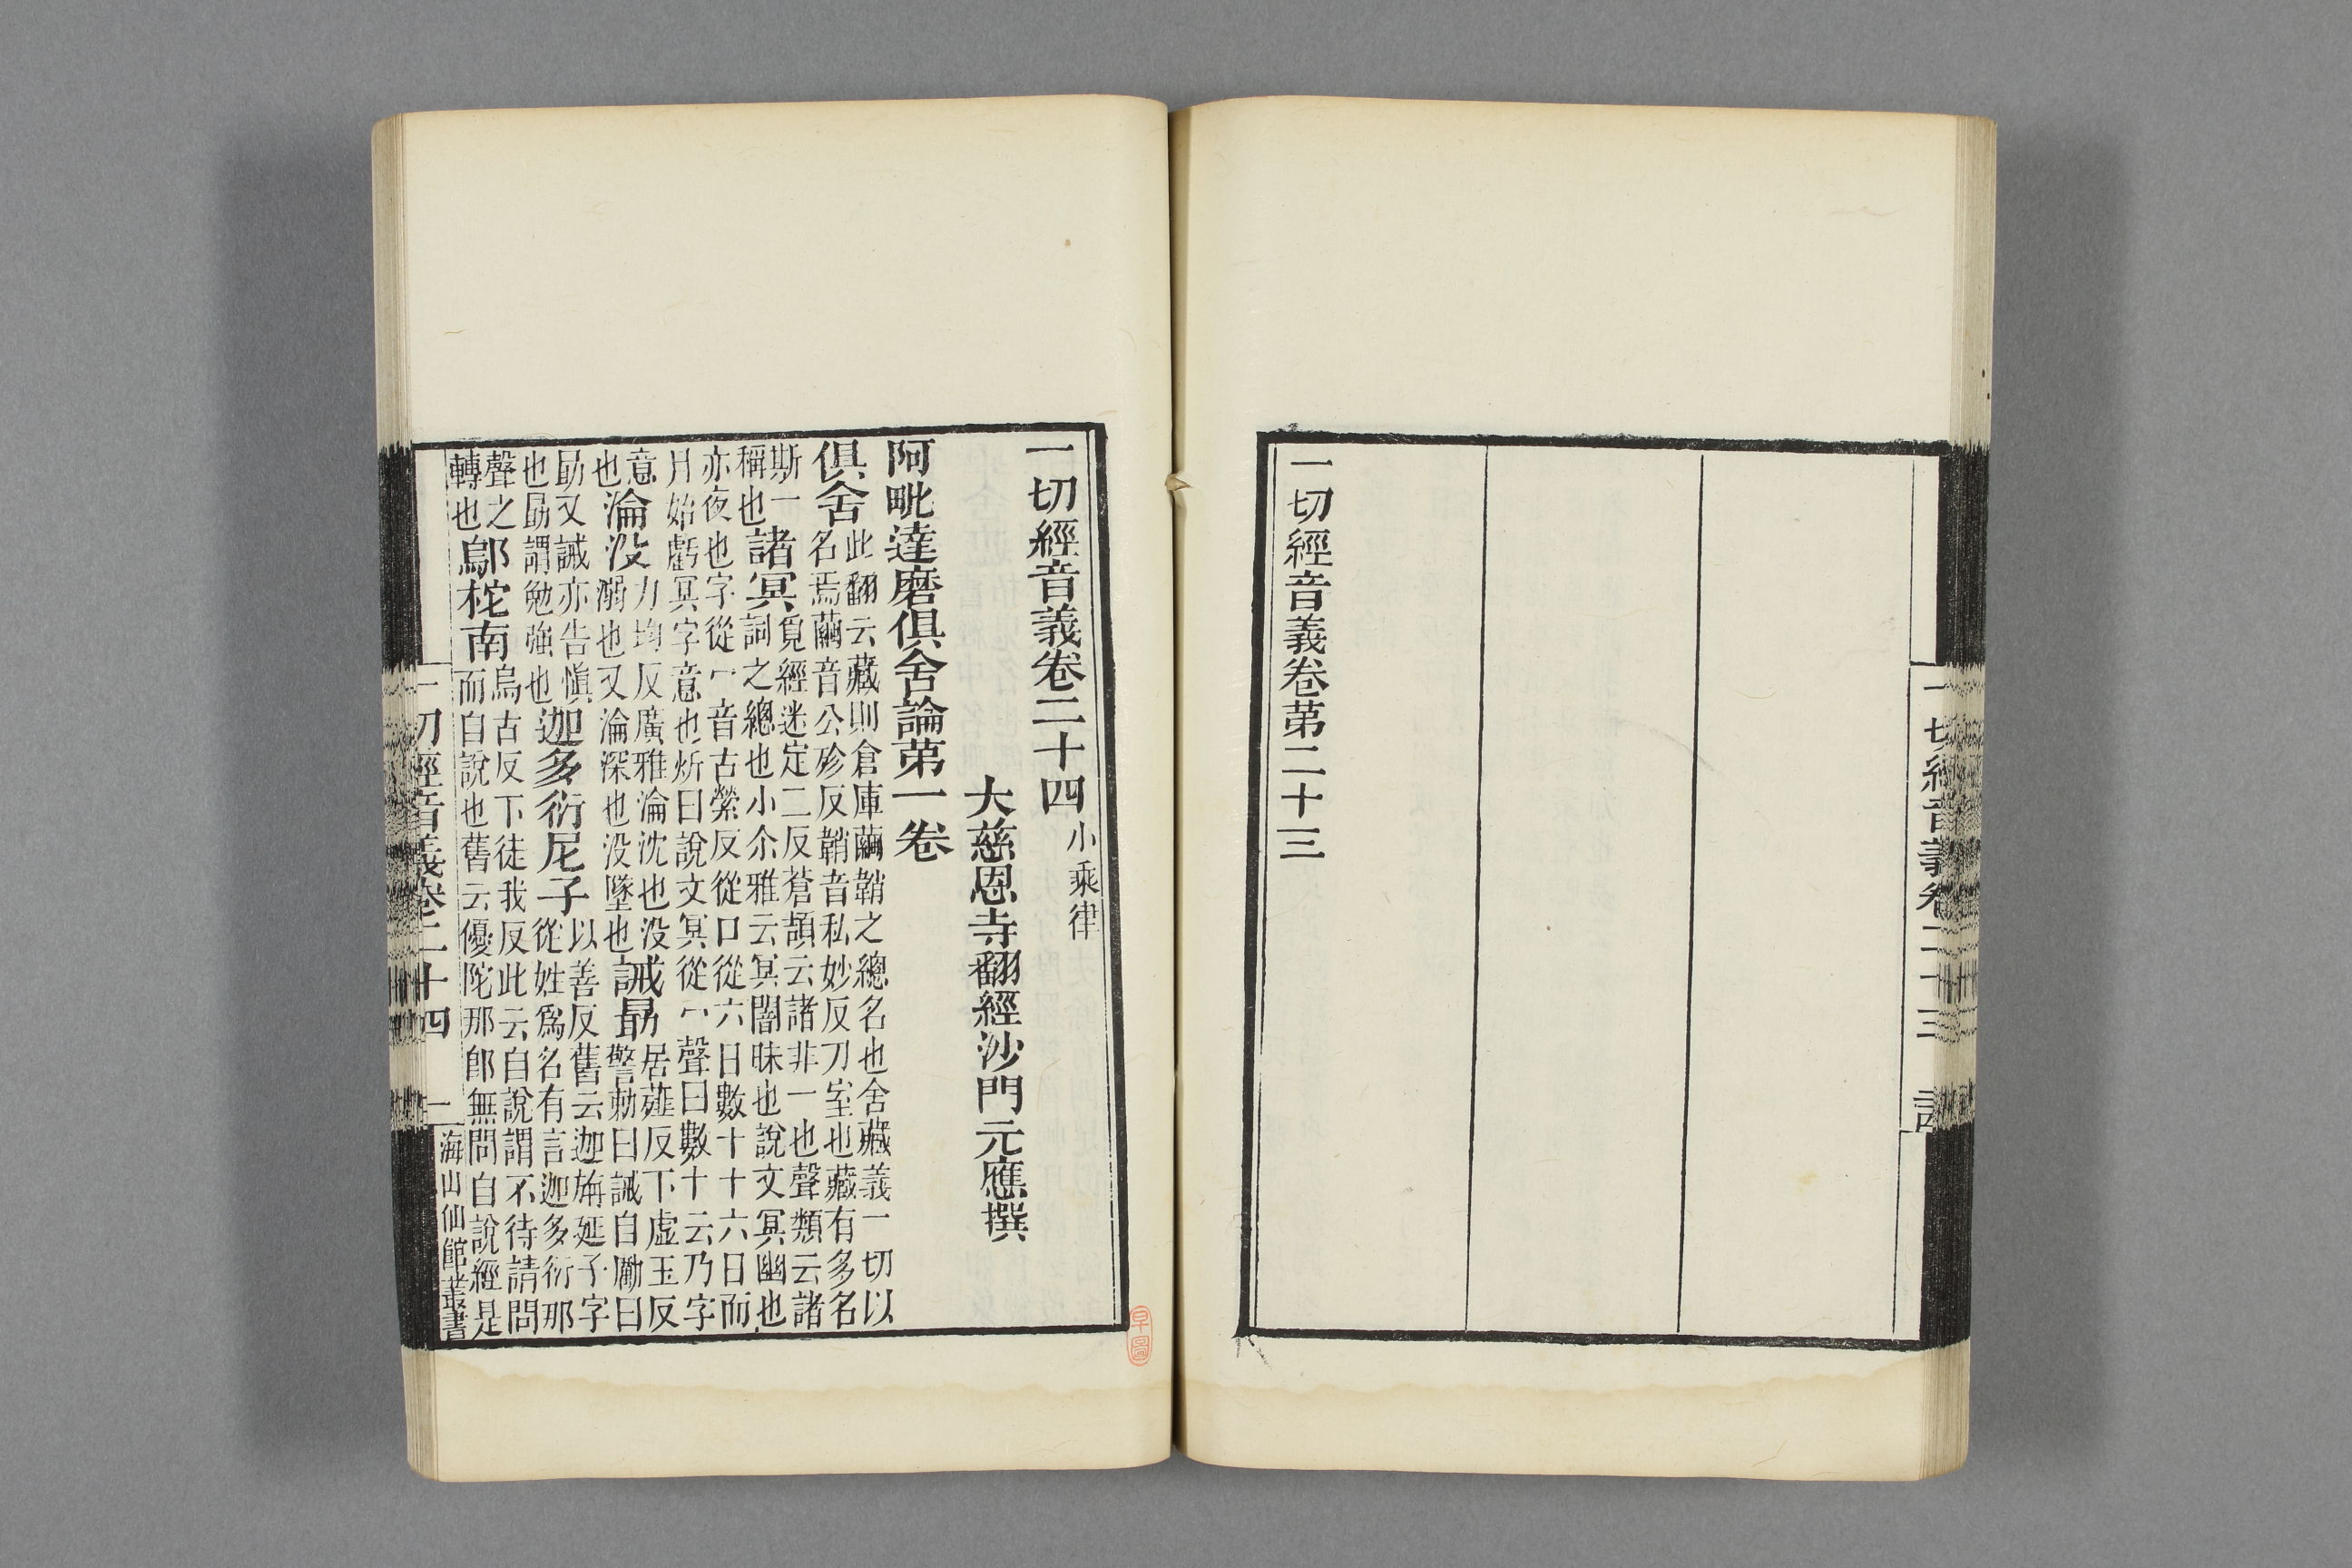 一切經音義卷二十三
一切經音義卷第二十三
一切經音義卷二十四 小乘律
大慈恩寺翻經沙門元應撰
阿毗達磨俱舍論第一卷
俱舍 此翻云藏則倉庫繭鞘之總名也舍藏義一切以
名焉繭音公殄反鞘音私妙反刀室也藏有多名
斯一稱也 諸冥 覓經迷定二反蒼頡云諸非一也聲類云諸
詞之總也小尒雅云冥闇昧也說文冥幽也
亦夜也字從冖音古縈反從口從六日數十十六日而
月始虧冥字意也炘曰說文冥從冖聲曰數十云乃字
意也 淪没 力均反廣雅淪沈也没溺也又淪深也没墜也 誡勗 居薤反下虛玉反
警勑曰誡自勵曰
勗又誡亦告愼也勗謂勉強也 迦多衍尼子 以善反舊云迦旃延子字
從姓爲名有言迦多衍那
聲之轉也 鄔柁南 烏古反下徒我反此云自說謂不待請問
而自說也舊云優陀那郎無問自說經是
一切經音義卷二十四 一 海山仙館叢書
早圖